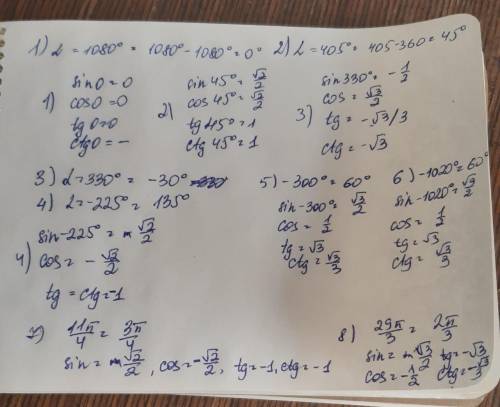 1) α = 1080° = 1080° - 1080° = 0° 2) α = 405° = 405 - 360 = 45°
1) sin 0 = 0
cos 0 = 0
tg 0 = 0
ctg 0 = -
2) sin 45° = √2/2
cos 45° = √2/2
tg 45° = 1
ctg 45° = 1
3) sin 330° = -1/2
cos = √3/2
tg = -√3/3
ctg = -√3
3) α = 330° = -30°
4) α = -225° = 135°
4) sin -225° = √2/2
cos = -√2/2
tg = ctg = -1
5) -300° = 60°
sin -300° = √3/2
cos = 1/2
tg = √3
ctg = √3/3
6) -1020° = 60°
sin -1020° = √3/2
cos = 1/2
tg = √3
ctg = √3/3
7) 11π/4 = 3π/4
sin = √2/2, cos = -√2/2, tg = -1, ctg = -1
8) 29π/3 = 2π/3
sin = √3/2 tg = -√3
cos = -1/2 ctg = -√3/3